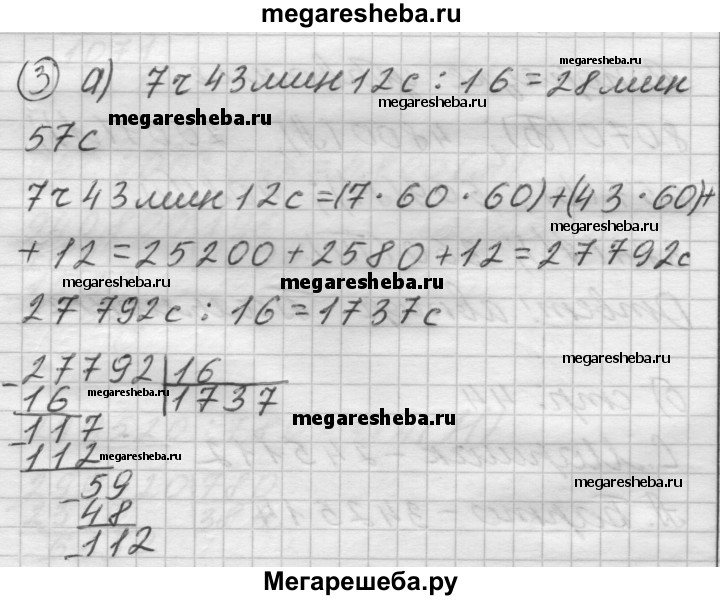 megaresheba.ru
③ а) 7ч 43мин 12с : 16 = 28мин
megaresheba.ru
megaresheba.ru
megaresheba.ru
57с
7ч 43мин 12с = (7 · 60 · 60) + (43 · 60) +
megaresheba.ru
+ 12 = 25200 + 2580 + 12 = 27792с
megaresheba.ru
megaresheba.ru
27 792с : 16 = 1737с
megaresheba.ru
- 27792 | 16
16 megaresheba.ru 1737
megaresheba.ru
- 117
112 megaresheba.ru
- 59
megaresheba.ru
48
- 112
Мегарешеба.ру